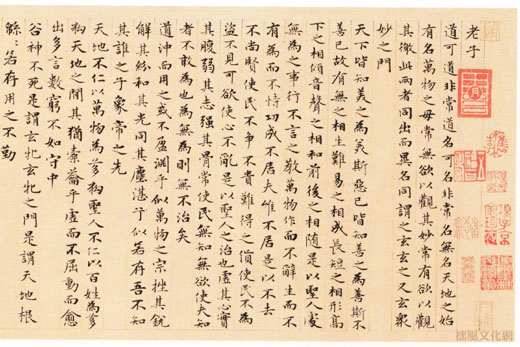 老子
道可道非常道名可名非常名無名天地之始
有名萬物之母常無欲以觀其妙常有欲以觀
其徼此兩者同出而異名同謂之玄玄之又玄衆
妙之門
天下皆知美之為美斯惡已皆知善之為善斯不
善已故有無之相生難易之相成長短之相形高
下之相傾音聲之相和前後之相隨是以聖人處
無為之事行不言之教萬物作而不辭生而不
有為而不恃功成不居夫惟不居是以不去
不尚賢使民不爭不貴難得之貨使民不為
盜不見可欲使心不亂是以聖人之治也虛其心實
其腹弱其志强其骨常使民無知無欲使夫知
者不敢為也為無為則無不治矣
道沖而用之或不盈淵乎似萬物之宗挫其銳
解其紛和其光同其塵湛兮似若存吾不知
其誰之子象帝之先
天地不仁以萬物為芻狗聖人不仁以百姓為芻
狗天地之間其猶橐籥乎虛而不屈動而愈
出多言數窮不如守中
谷神不死是謂玄牝玄牝之門是謂天地根
緜〻若存用之不勤
拙風文化網